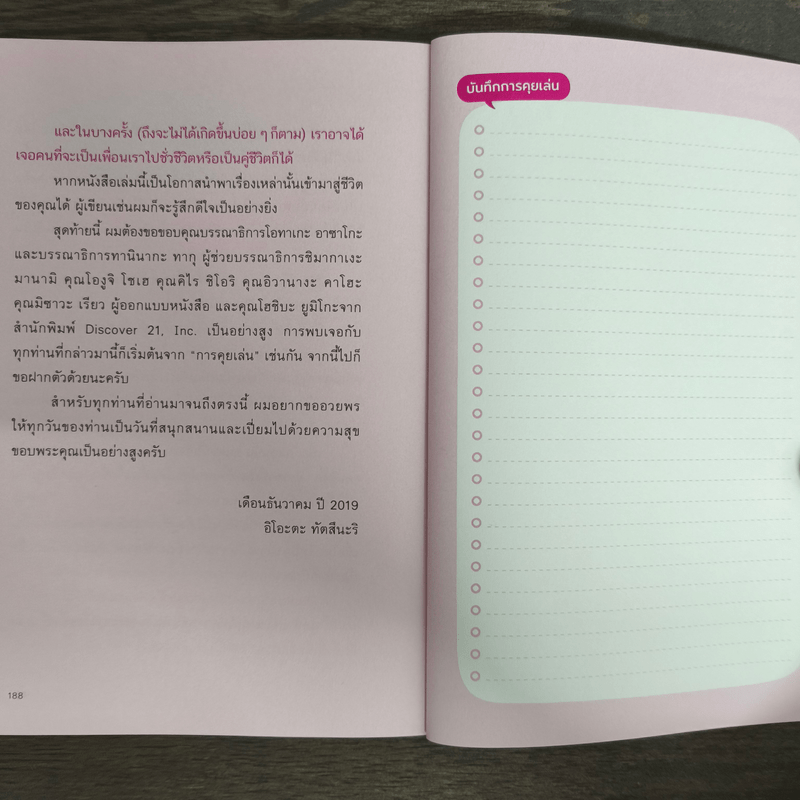 และในบางครั้ง (ถึงจะไม่ได้เกิดขึ้นบ่อย ๆ ก็ตาม) เราอาจได้
เจอคนที่จะเป็นเพื่อนเราไปชั่วชีวิตหรือเป็นคู่ชีวิตก็ได้
หากหนังสือเล่มนี้เป็นโอกาสนำพาเรื่องเหล่านั้นเข้ามาสู่ชีวิต
ของคุณได้ ผู้เขียนเช่นผมก็จะรู้สึกดีใจเป็นอย่างยิ่ง
สุดท้ายนี้ ผมต้องขอขอบคุณบรรณาธิการโอทาเกะ อาซาโกะ
และบรรณาธิการทานินากะ ทากุ ผู้ช่วยบรรณาธิการชิมากาเงะ
มานามิ คุณโองูจิ โชเฮ คุณคิไร ชิโอริ คุณอิวานางะ คาโฮะ
คุณมิซาวะ เรียว ผู้ออกแบบหนังสือ และคุณโฮชิบะ ยูมิโกะจาก
สำนักพิมพ์ Discover 21, Inc. เป็นอย่างสูง การพบเจอกับ
ทุกท่านที่กล่าวมานี้ก็เริ่มต้นจาก “การคุยเล่น” เช่นกัน จากนี้ไปก็
ขอฝากตัวด้วยนะครับ
สำหรับทุกท่านที่อ่านมาจนถึงตรงนี้ ผมอยากขออวยพร
ให้ทุกวันของท่านเป็นวันที่สนุกสนานและเปี่ยมไปด้วยความสุข
ขอบพระคุณเป็นอย่างสูงครับ
เดือนธันวาคม ปี 2019
อิโอะตะ ทัตสึนะริ
188
บันทึกการคุยเล่น